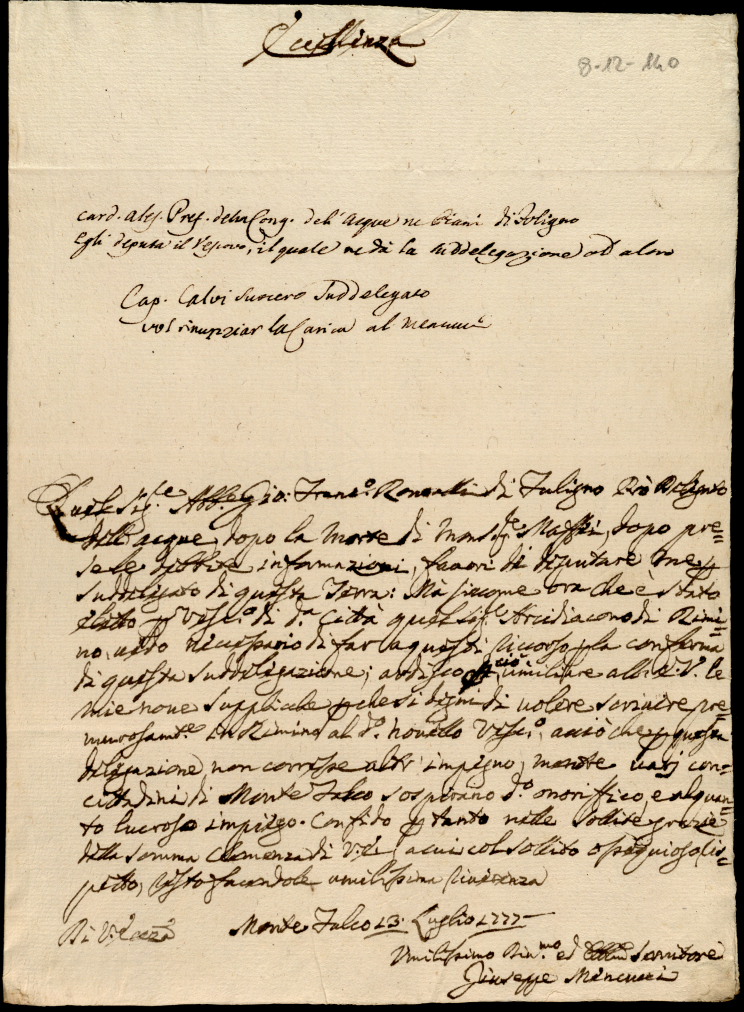 Eccellenza
8-12-140
Card. Ales. Pref. della Cong. dell'Acque ne Piani di Foligno
Egli deputa il Vescovo, il quale ne dà la suddelegazione ad altro
Cap. Calvi Suocero Suddelegato
vol rinunziar la Carica al
Quel Sig.re Abb. Gio: Fran.o di Fuligno Prò Delegato
dell'acque, dopo la Morte di Mons.re Maffei, dopo pre=
se le debite informazioni, favorì di deputare me p
suddelegato di questa Terra: Mà siccome ora che è stato
eletto p Vesc.o di d.a Città quel Sig.re Arcidiacono di Rimi=
no, vedo necessario di far a questi ricorso p la conferma
di questa suddeligazione; ardisco umiliare all' V. le
mie nove suppliche p che si degni di volere scrivere pre=
murosam.te in Rimino al d.o novello Vesc.o, acciò che questa
deligazione non corresse altr'impegno, mentre varj con=
cittadini di Monte Falco sospirano d.o onorifico, e alquan=
to lucroso impiego. Confido p tanto nelle solite grazie
della somma Clemenza di V. a cui col sollito ossequioso ris=
petto, resto facendole umilissima riverenza
Di V.
Monte Falco 13. Luglio 1777
Umilissimo Div.mo ed Servitore
Giuseppe Mancucci